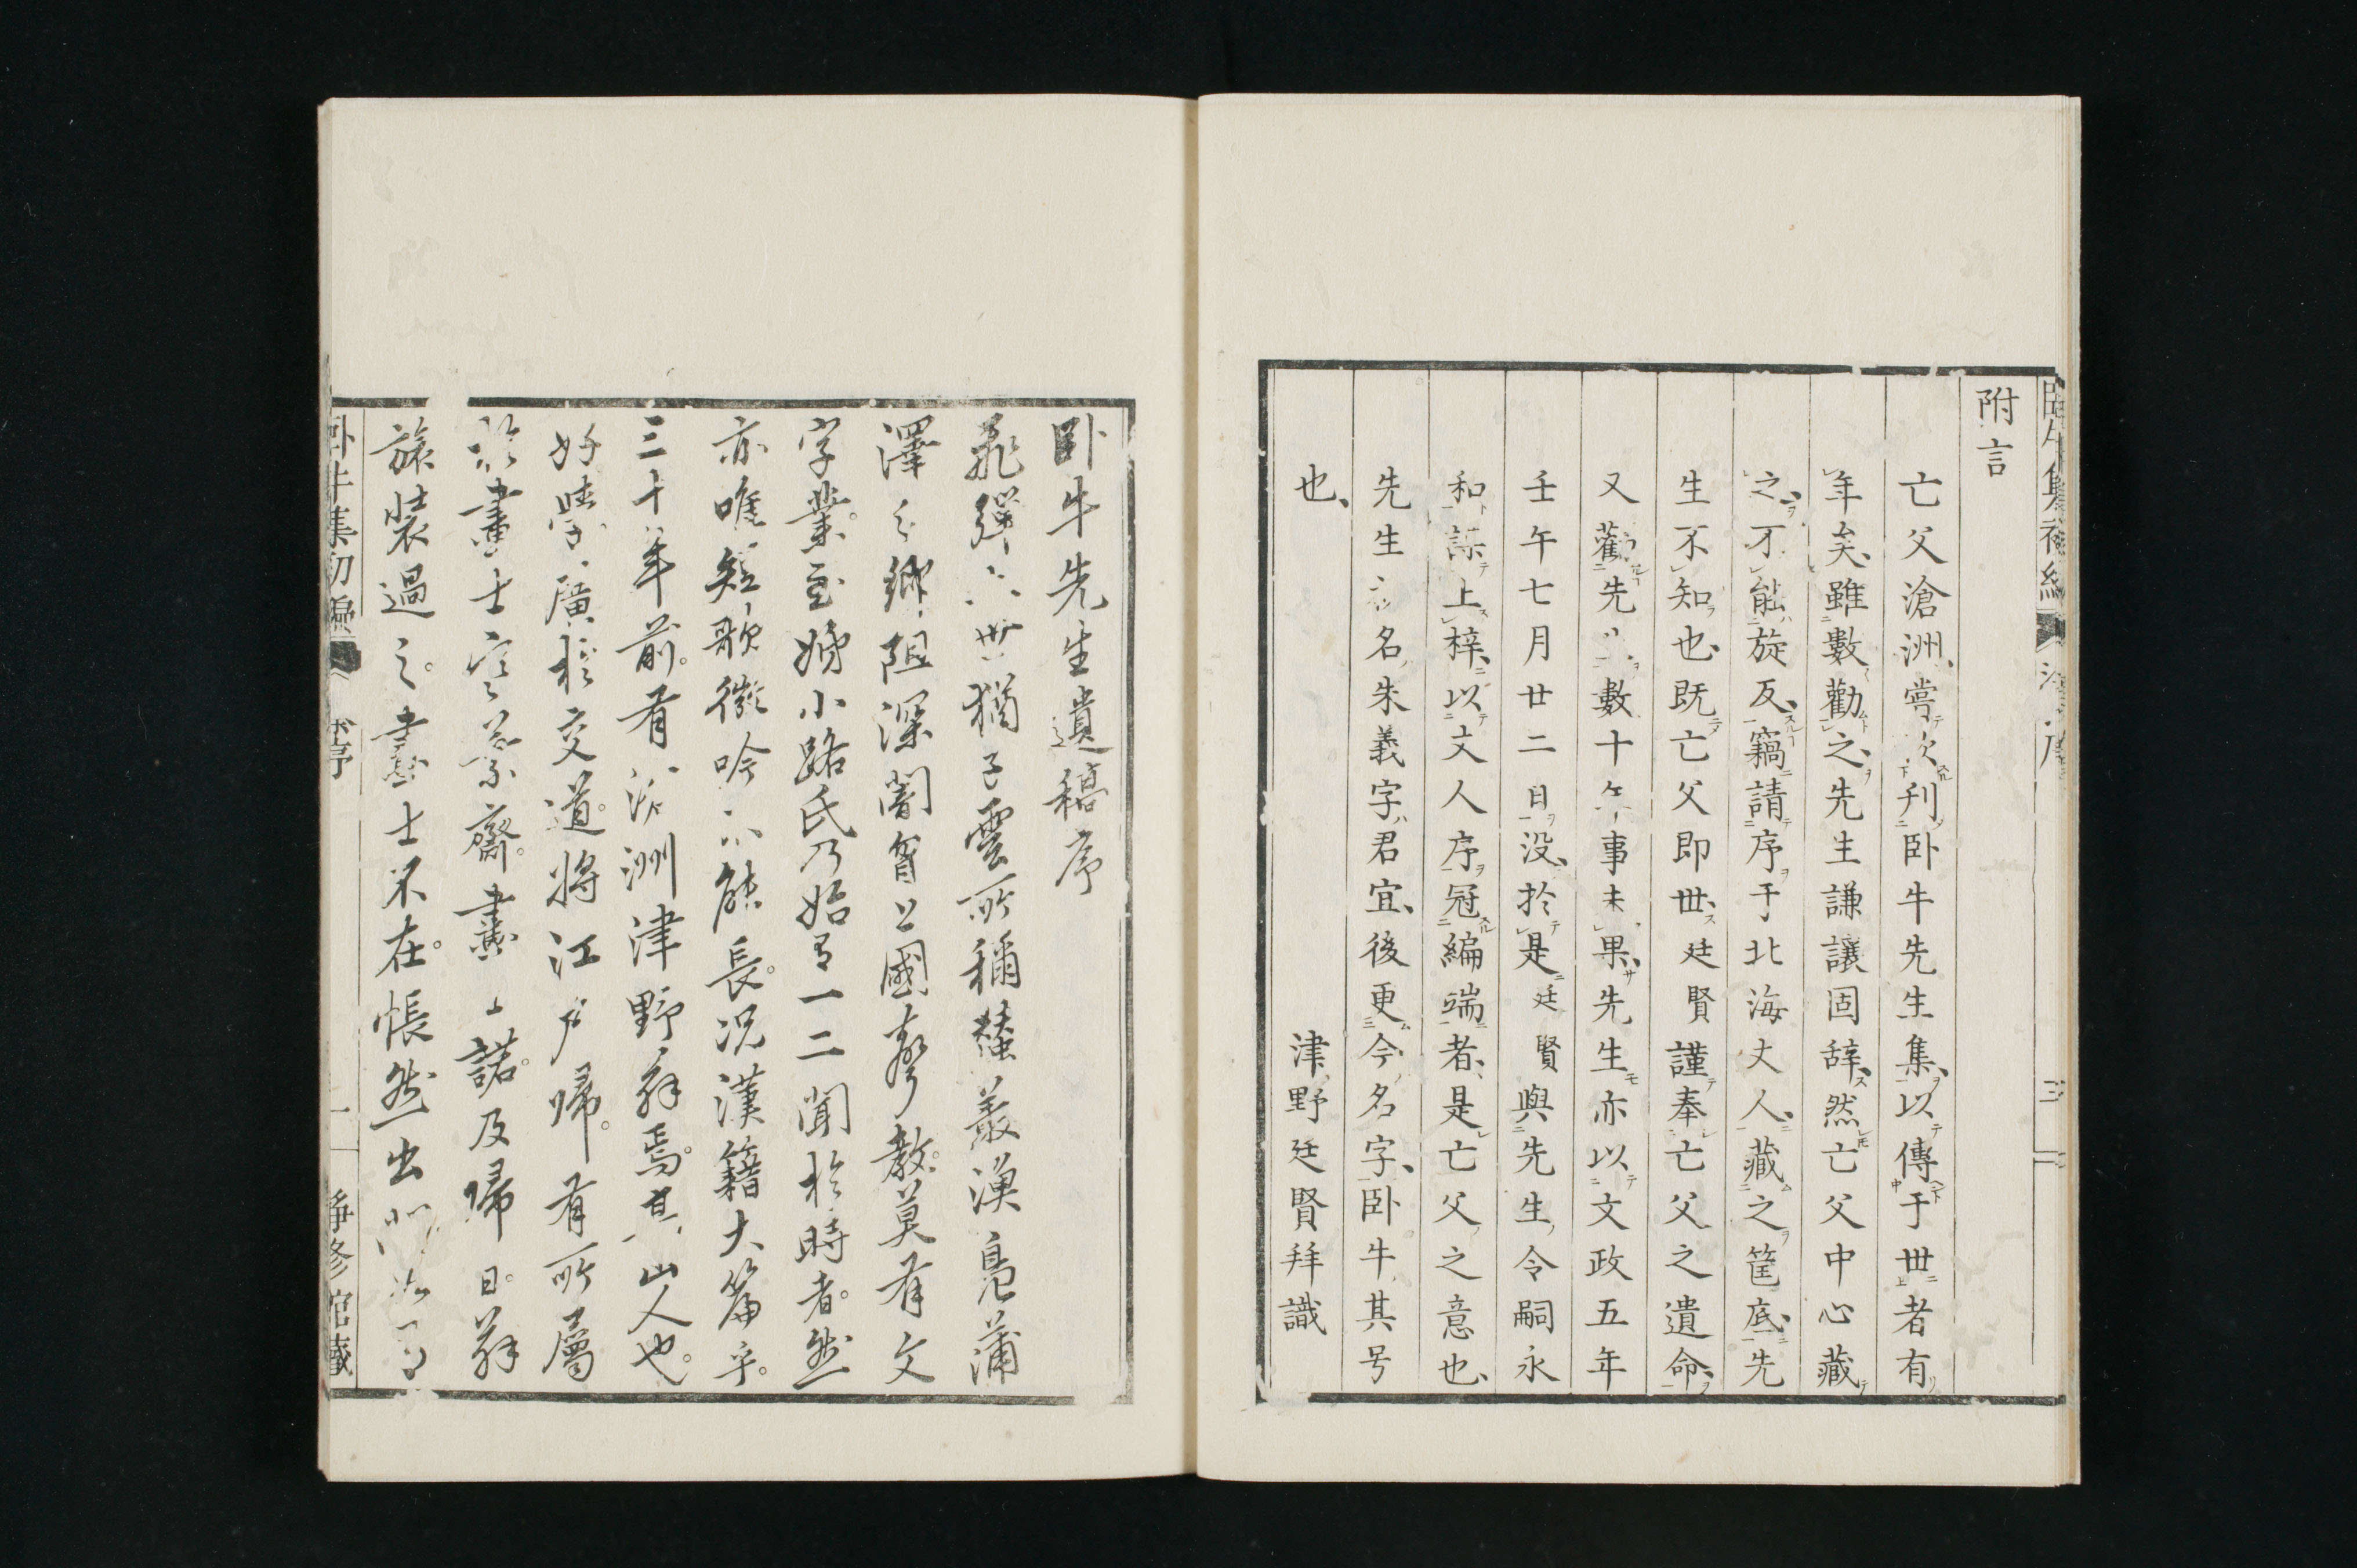 附言
亡父滄洲、嘗欲刊卧牛先生集、以傳于世者有
年矣、雖數勸之、先生謙讓固辞、然亡父中心藏
之、不能旋反、竊請序于北海丈人、藏之筐底、先
生不知也、既亡父即世、廷賢謹奉亡父之遺命、
又勸先生數十年事未果、先生亦以文政五年
壬午七月廿二日没、於是廷賢與先生令嗣永
和謀上梓、以丈人序冠編端者、是亡父之意也、
先生名朱義字君宜、後更今名字、卧牛其号
也、
津野廷賢拜識
卧牛先生遺稿序
飛彈之世猶子雲所稱蠶叢漁鳧蒲
澤之鄉阻深闇智上國聲教莫有文
字業至姉小路氏乃始有一二聞於時者。然
亦唯短歌微吟不能長。況漢籍大篇乎。
三十年前。有滄洲津野辞焉。其山人也。
好學廣於交道。將江戶歸。有所屬
於畫士寒葉齋。畫士諾。及歸日。辞
旅裝過之。畫士不在。悵然出門
卧牛集初編 序 一 靜修館藏